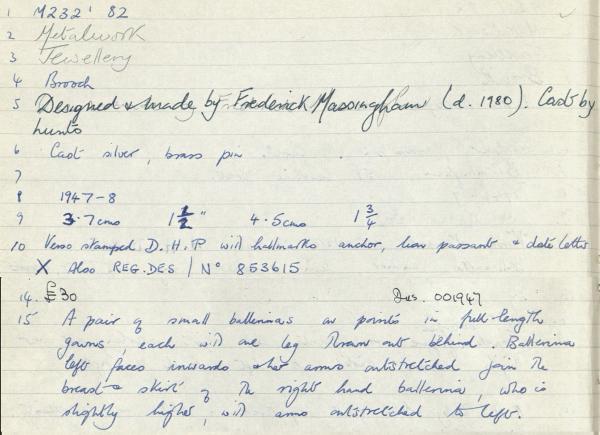 1 M232' 82
2 Metalwork
3 Jewellery
4 Brooch
5 Designed & made by Frederick Massingham (d. 1980). Cast by
hunts
6 Cast silver, brass pin
7
8 1947-8
9 3.7cms 1 1/2" 4.5cms 1 3/4
10 Verso stamped D.H.P with hallmarks anchor, lion passant & date letter
X Also REG.DES / Nº 853615
14. £30 Dus. 001947
15 A pair of small ballerinas on points in full-length
gowns, each with one leg thrown out behind. Ballerina
left faces inwards & her arms outstretched join the
breast & skirt of the right hand ballerina, who is
slightly higher, with arms outstretched to left.